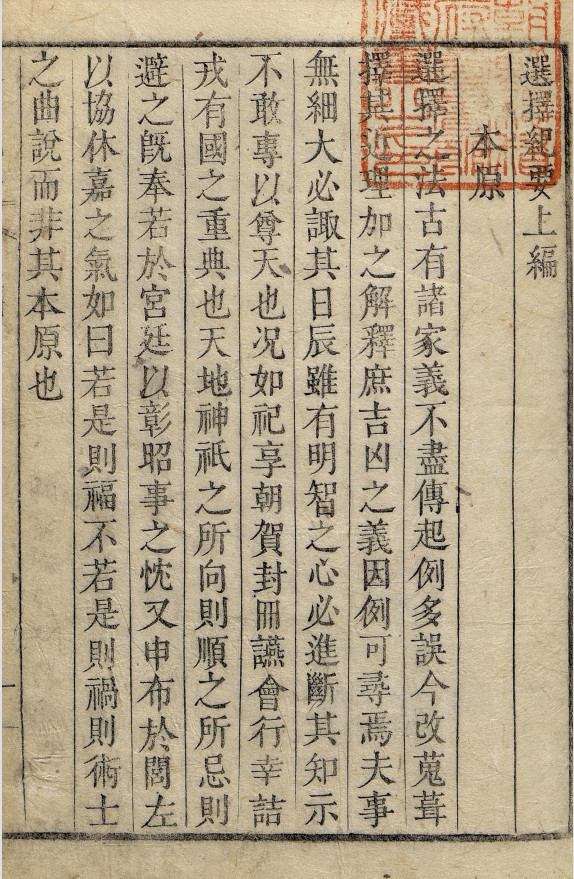 選擇紀要上編
本原
選擇之法古有諸家義不盡傳起例多誤今改蒐葺
擇其近理加之解釋庶吉凶之義因例可尋焉夫事
無細大必諏其日辰雖有明智之心必進斷其知示
不敢專以尊天也况如祀享朝賀封冊讌會行幸詰
戎有國之重典也天地神祇之所向則順之所忌則
避之旣奉若於宮廷以彰昭事之忱又申布於閭左
以協休嘉之氣如曰若是則福不若是則禍則術士
之曲說而非其本原也